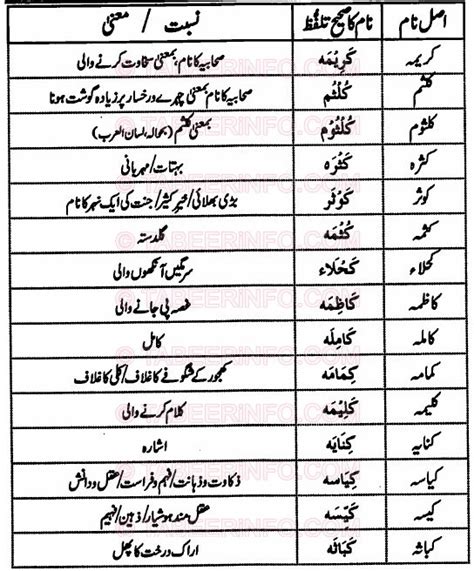 اصل نام	نام کا صحیح تلفظ	نسبت / معنیٰ
کریمہ	کَرِیْمَه	صحابیہ کا نام، بمعنیٰ سخاوت کرنے والی
کلثم	کُلْثُم	صحابیہ کا نام بمعنیٰ چہرے و رخسار پر زیادہ گوشت ہونا
کلثوم	کُلْثُوْم	بمعنیٰ کلثم (بحوالہ لسان العرب)
کثرہ	کَثْرَه	بہتات/مہربانی
کوثر	کَوْثَر	بڑی بھلائی/خیر کثیر/جنت کی ایک نہر کا نام
کثمہ	کُثْمَه	گلدستہ
کحلاء	کَحْلَاء	سرمگیں آنکھوں والی
کاظمہ	کَاظِمَه	غصہ پی جانے والی
کاملہ	کَامِلَه	کامل
کمامہ	کِمَامَه	کھجور کے شگوفے کا غلاف/کلی کا غلاف
کلیمہ	کَلِیْمَه	کلام کرنے والی
کنایہ	کِنَایَه	اشارہ
کیاسہ	کِیَاسَه	ذکاوت و ذہانت/فہم و فراست/عقل و دانش
کیسہ	کَیِّسَه	عقل مند ہوشیار/ذہین/فہیم
کباثہ	کَبَاثَه	اراک درخت کا پھل
© TABEERINFO.COM